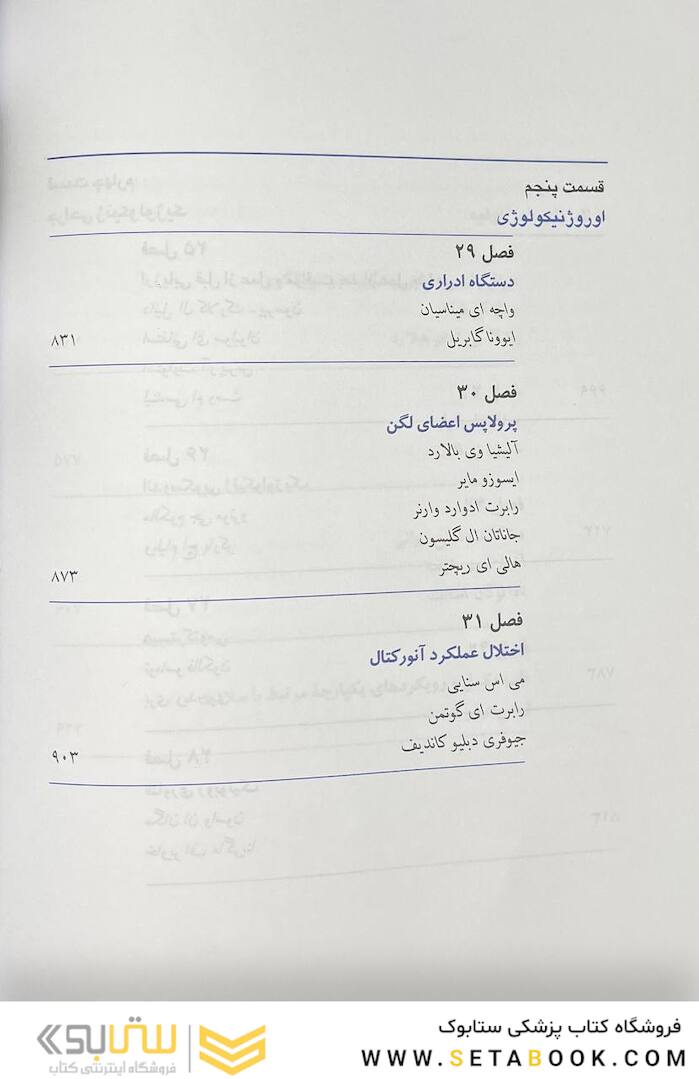 قسمت پنجم
اوروژنیکولوژی
فصل ۲۹
دستگاه ادراری
واچه ای میناسیان
ایوونا گابریل ۸۳۱
فصل ۳۰
پرولاپس اعضای لگن
آلیشیا وی بالارد
ایسوزو مایر
رابرت ادوارد وارنر
جاناتان ال گلیسون
هالی ای ریچتر ۸۷۳
فصل ۳۱
اختلال عملکرد آنورکتال
می اس سنایی
رابرت ای گوتمن
جیوفری دبلیو کاندیف ۹۰۳
فروشگاه کتاب پزشکی ستابوک
WWW.SETABOOK.COM
ستابوک
فروشگاه اینترنتی کتاب